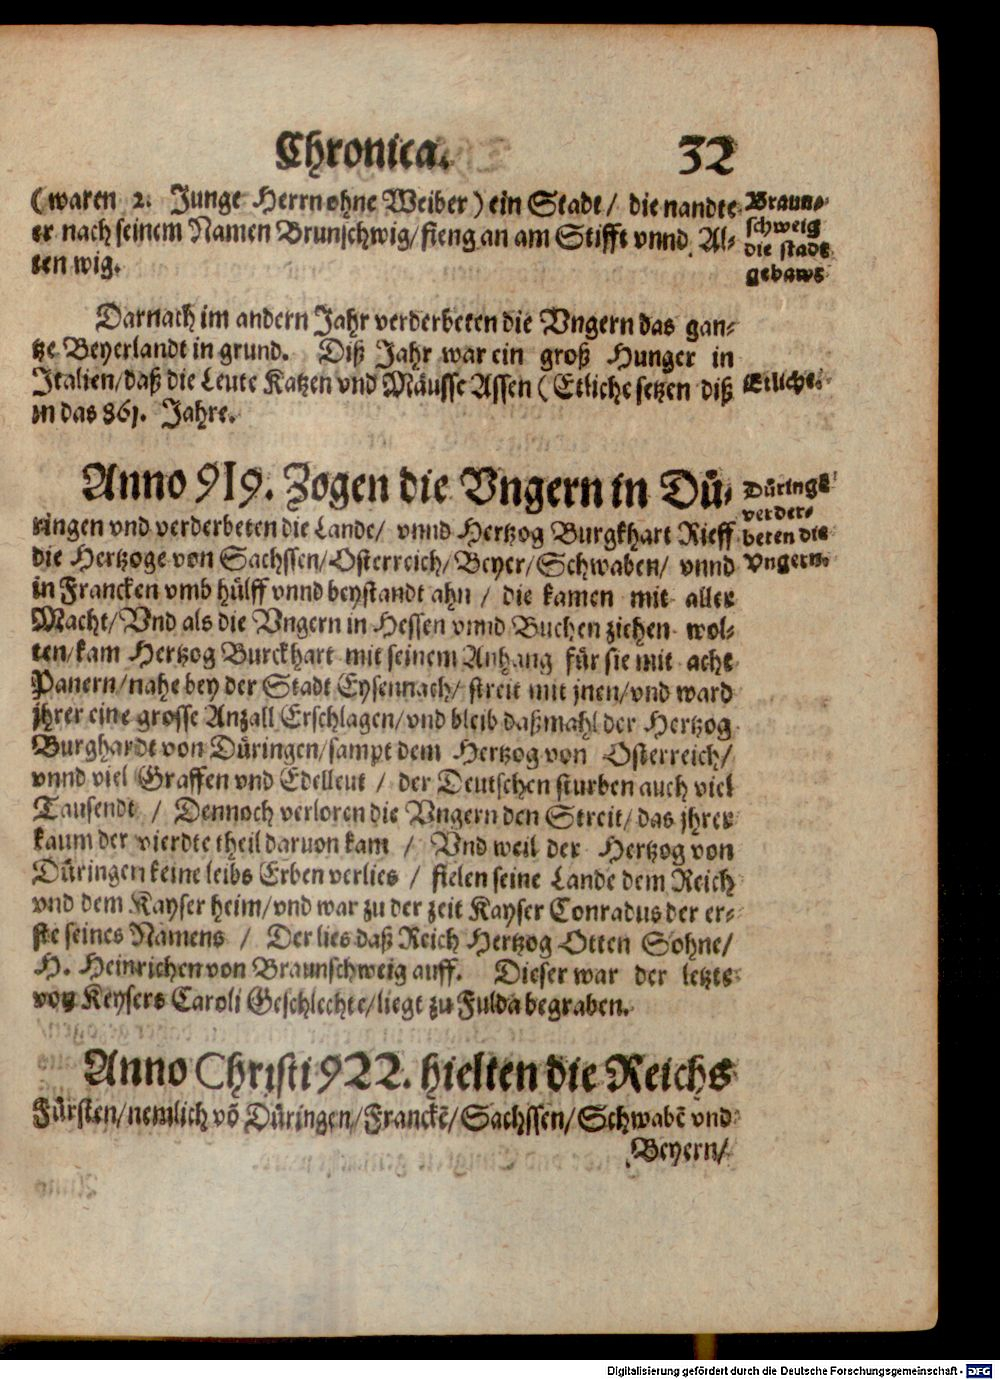 Chronica. 32
(waren 2. Junge Herrn ohne Weiber) ein Stadt / die nandte
er nach seinem Namen Brunschwig / fieng an am Stifft vnnd Al-
ten wig.
Braun-
schweig
die stadt
gebawt
Darnach im andern Jahr verderbeten die Vngern das gan-
tze Beyerlandt in grund. Diß Jahr war ein groß Hunger in
Italien / daß die Leute Katzen vnd Mäusse Assen (Etliche setzen diß
in das 861. Jahre.
Etliche.
Anno 919. Zogen die Vngern in Dü-
ringen vnd verderbeten die Lande / vnnd Hertzog Burgkhart Rieff
die Hertzoge von Sachssen / Osterreich / Beyer / Schwaben / vnnd
in Francken vmb hülff vnnd beystandt ahn / die kamen mit aller
Macht / Vnd als die Vngern in Hessen vnnd Buchen ziehen wol-
ten / kam Hertzog Burckhart mit seinem Anhang für sie mit acht
Panern / nahe bey der Stadt Eysennach / streit mit jnen / vnd ward
jhrer eine grosse Anzall Erschlagen / vnd bleib daßmahl der Hertzog
Burghardt von Düringen / sampt dem Hertzog von Osterreich /
vnnd viel Graffen vnd Edelleut / der Deutschen sturben auch viel
Tausendt / Dennoch verloren die Vngern den Streit / das jhrer
kaum der vierdte theil daruon kam / Vnd weil der Hertzog von
Düringen keine leibs Erben verlies / fielen seine Lande dem Reich
vnd dem Kayser heim / vnd war zu der zeit Kayser Conradus der er-
ste seines Namens / Der lies daß Reich Hertzog Otten Sohne /
H. Heinrichen von Braunschweig auff. Dieser war der letzte
von Keysers Caroli Geschlechte / liegt zu Fulda begraben.
Dürings
verder-
beten die
Vngern.
Anno Christi 922. hielten die Reichs
Fürsten / nemlich võ Düringen / Franckẽ / Sachssen / Schwabẽ vnd
Beyern /
Digitalisierung gefördert durch die Deutsche Forschungsgemeinschaft - DFG